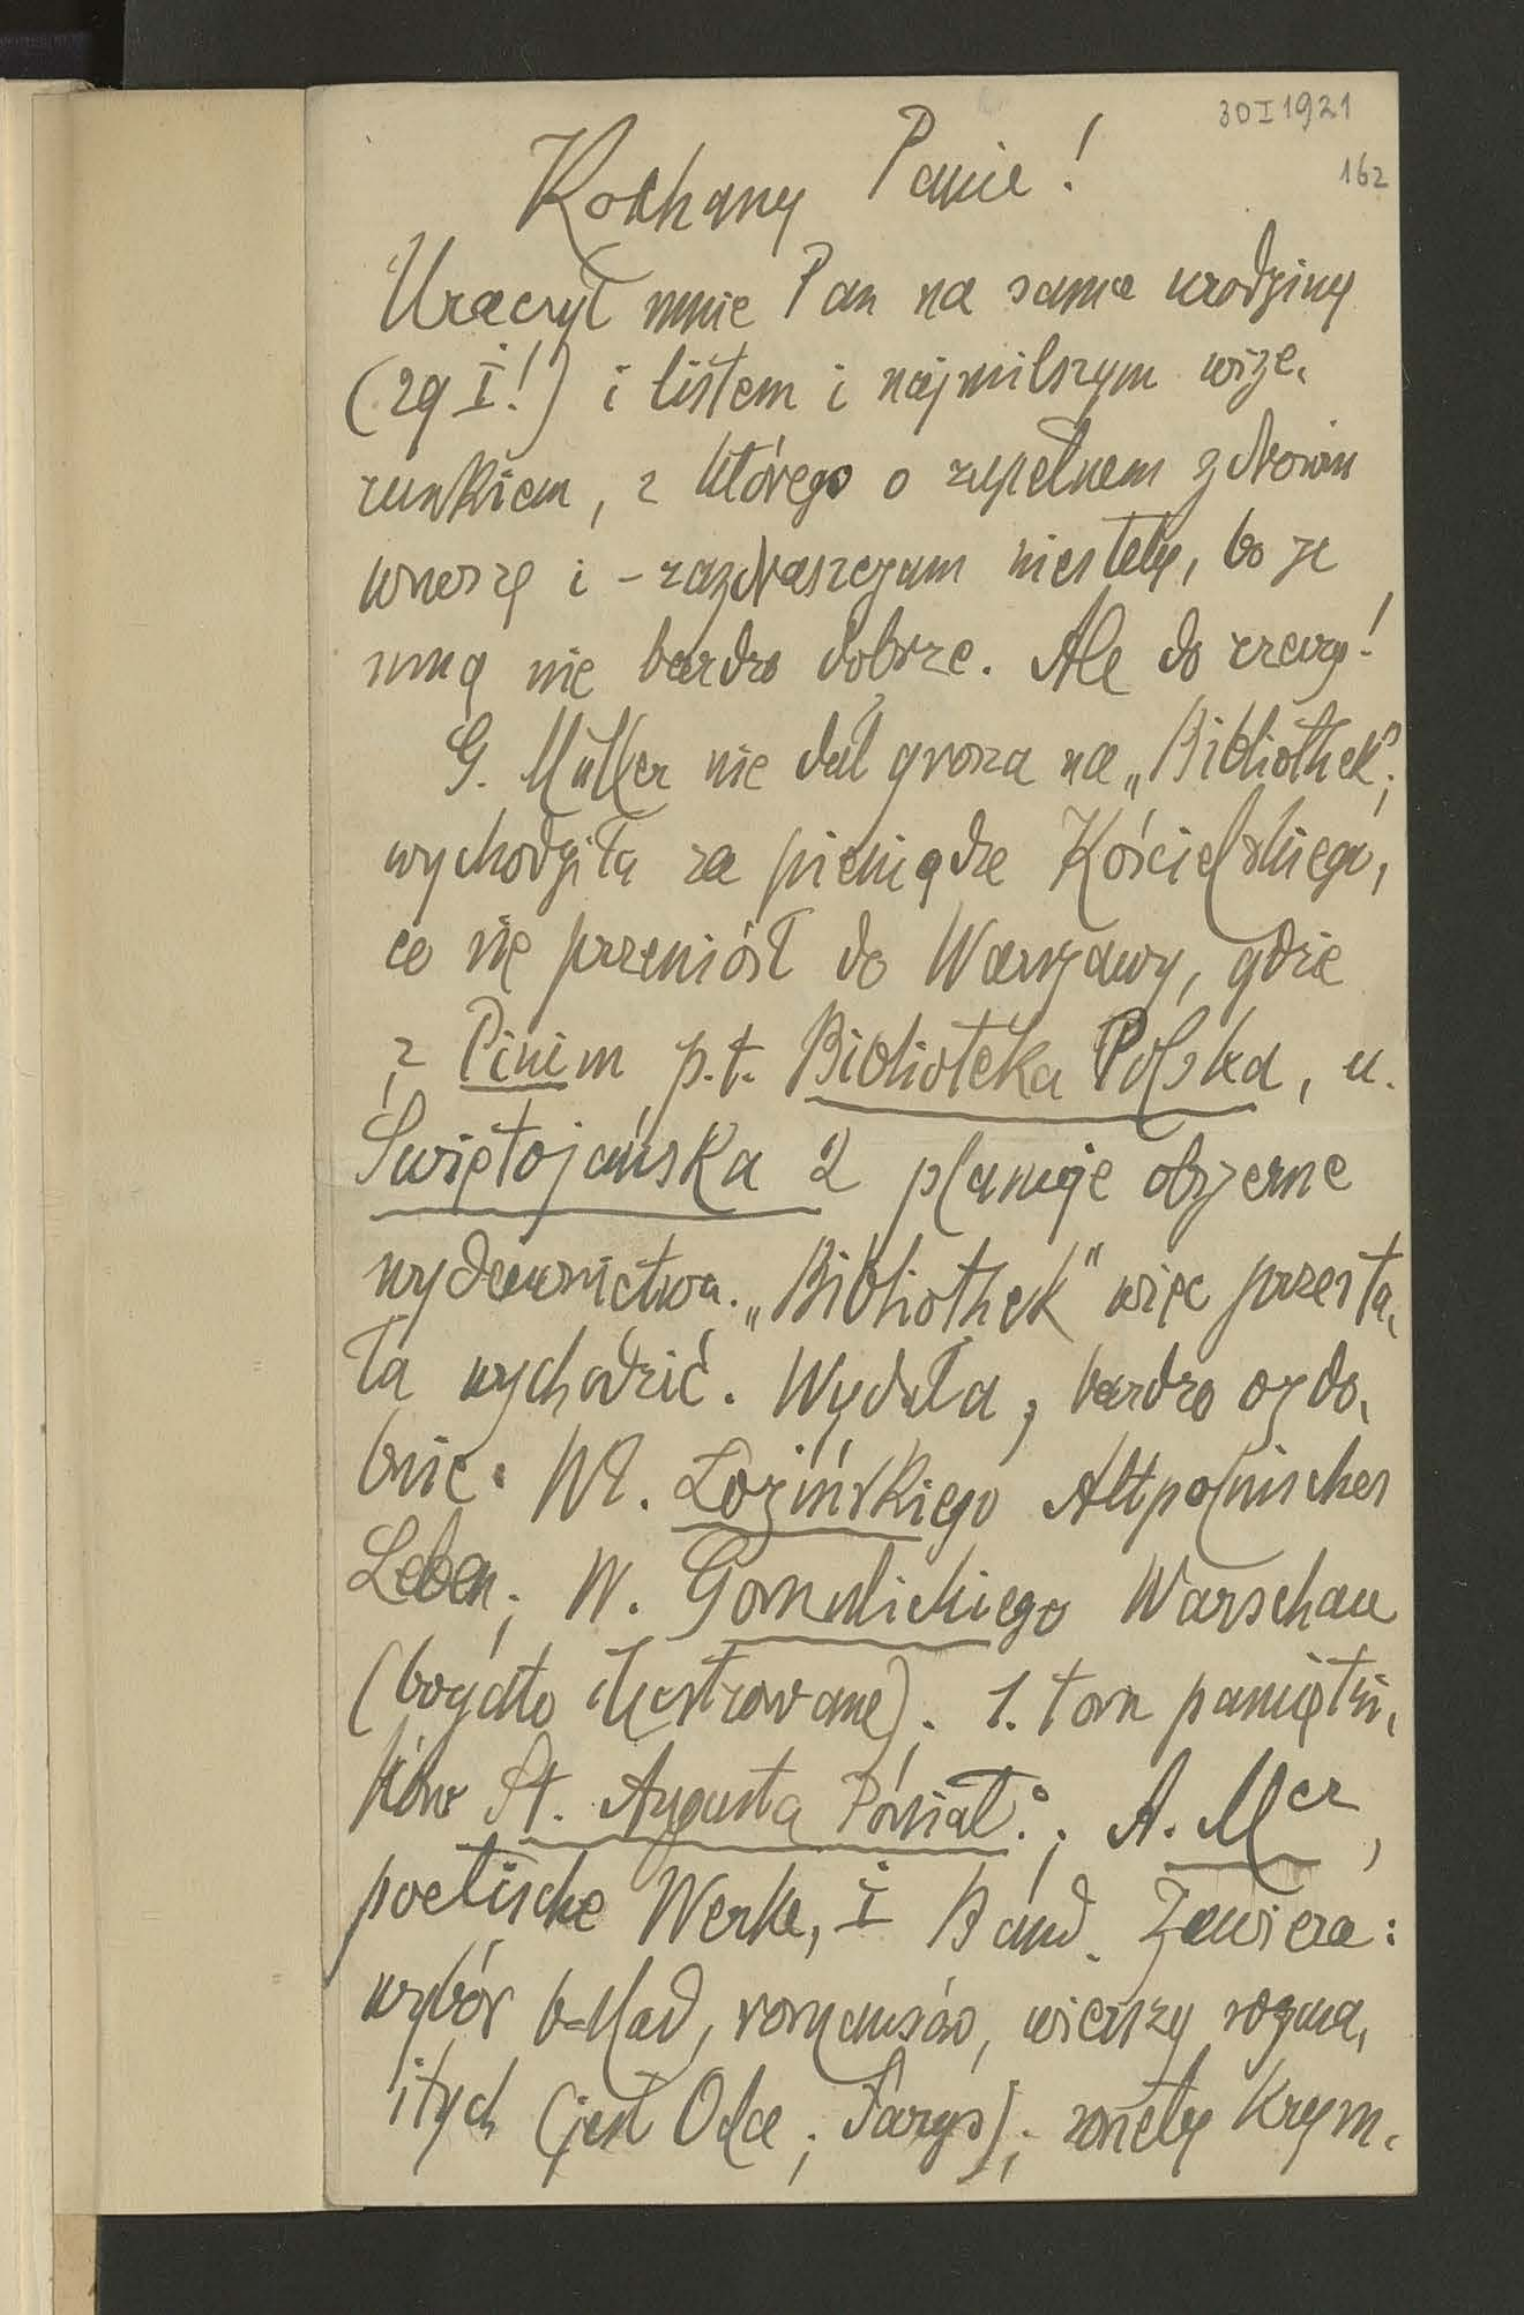 30 I 1921
162
Kochany Panie!
Uraczył mnie Pan na same urodziny
(29 I!) i listem i najmilszym wize-
runkiem, z którego o zupełnem zdrowiu
wnoszę i - zazdraszczam niestety, bo ze
mną nie bardzo dobrze. Ale do rzeczy!
G. Müller nie dał grosza na „Bibliothek";
wychodziła za pieniądze Kościelskiego,
co się przeniósł do Warszawy, gdzie
z Pinim p.t. Biblioteka Polska, u.
Świętojańska 2 planuje obszerne
wydawnictwa. „Bibliothek" więc przesta-
ła wychodzić. Wydała, bardzo ozdo-
bnie: Wł. Łozińskiego Altpolnisches
Leben; W. Gomulickiego Warschau
(bogato ilustrowane). 1. tom pamiętni-
ków St. Augusta Poniat.; A. Mcz,
poetische Werke, I Band. Zawiera:
wybór ballad, romansów, wierszy rozma-
itych (jest Oda; Farys); sonety Krym-